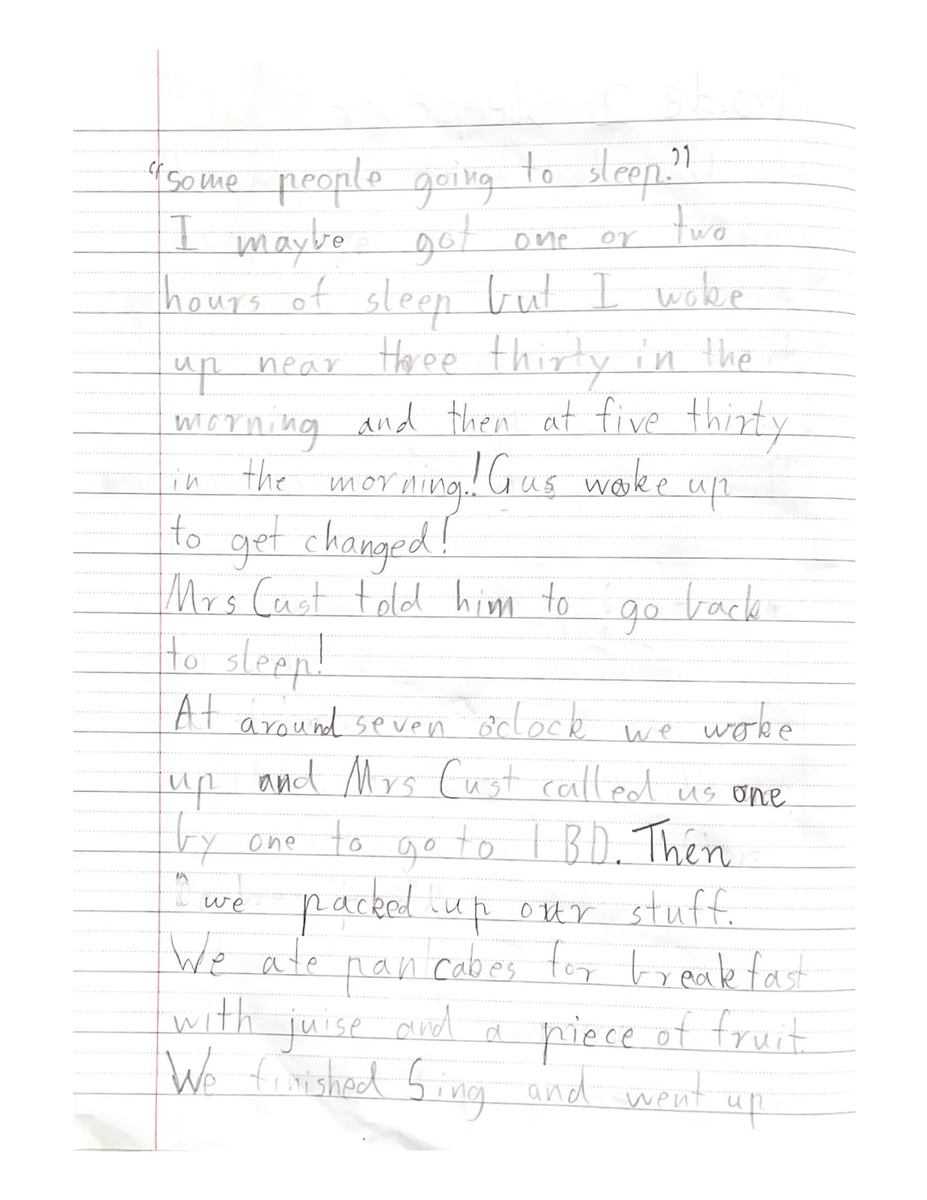 "some people going to sleep."
I maybe got one or two
hours of sleep but I woke
up near three thirty in the
morning and then at five thirty
in the morning! Gus woke up
to get changed!
Mrs Cust told him to go back
to sleep!
At around seven o'clock we woke
up and Mrs Cust called us one
by one to go to 1BD. Then
we packed up our stuff.
We ate pancabes for breakfast
with juise and a piece of fruit.
We finished and went up